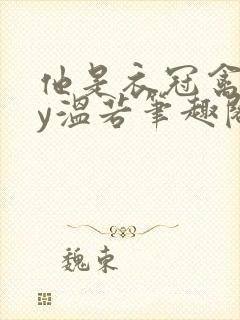 他是衣冠禽
y温若笔趣阁
魏东